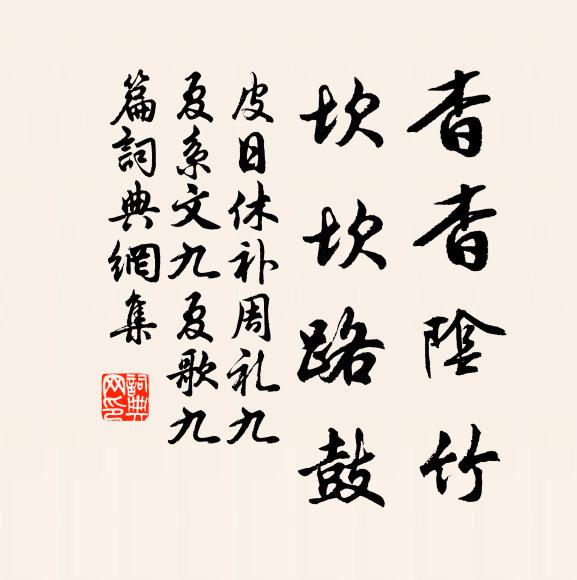 杳杳陰竹
坎坎路鼓
皮日休补周礼九
夏系文九夏歌九
篇詞典網集
詞典网印